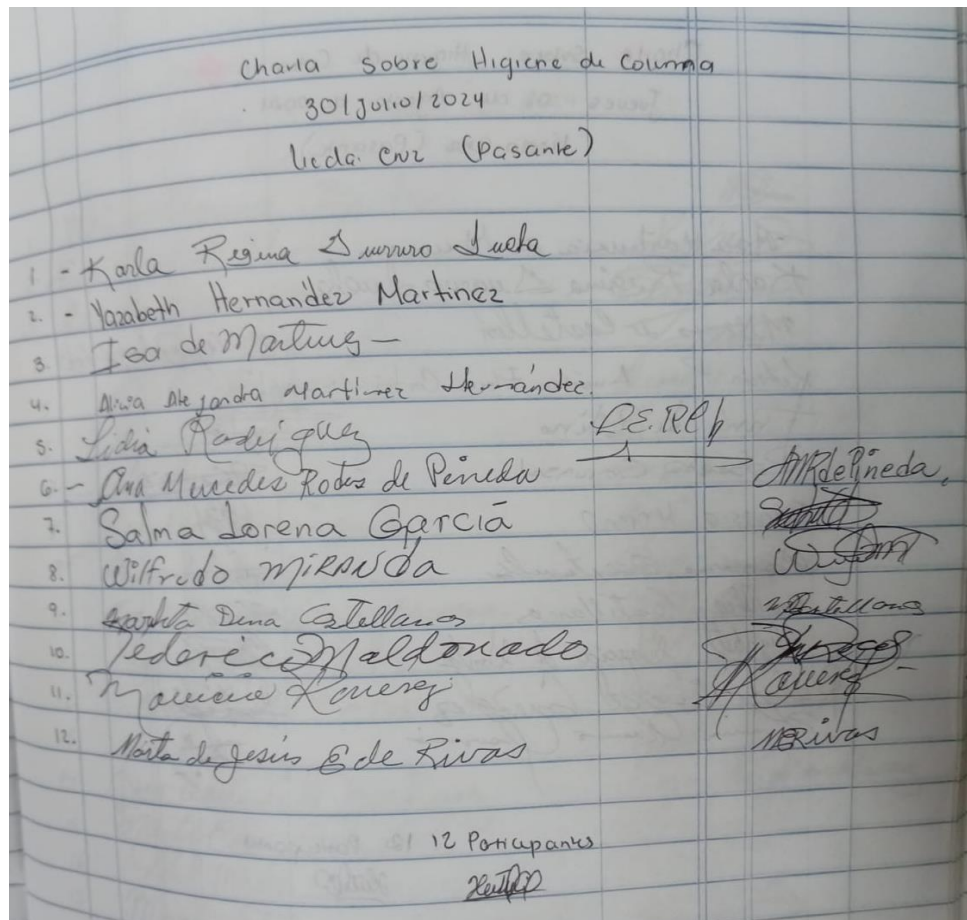 Charla sobre Higiene de Columna
30/Julio/2024
Licda. Cruz (Pasante)
1 - Karla Regina
2. - Yazabeth Hernandez Martinez
3. Isa de Martinez -
4. Alicia Alejandra Martinez Hernández.
5. Lidia Rodriguez
6. - Ana Mercedes Rodas de Pineda AMRdePineda.
7. Salma Lorena García
8. Wilfredo MIRANDA
9. Dina Castellanos
10. Federico Maldonado
11. Mauricio
12. Marta de Jesús G de Rivas MRivas
12 Participantes